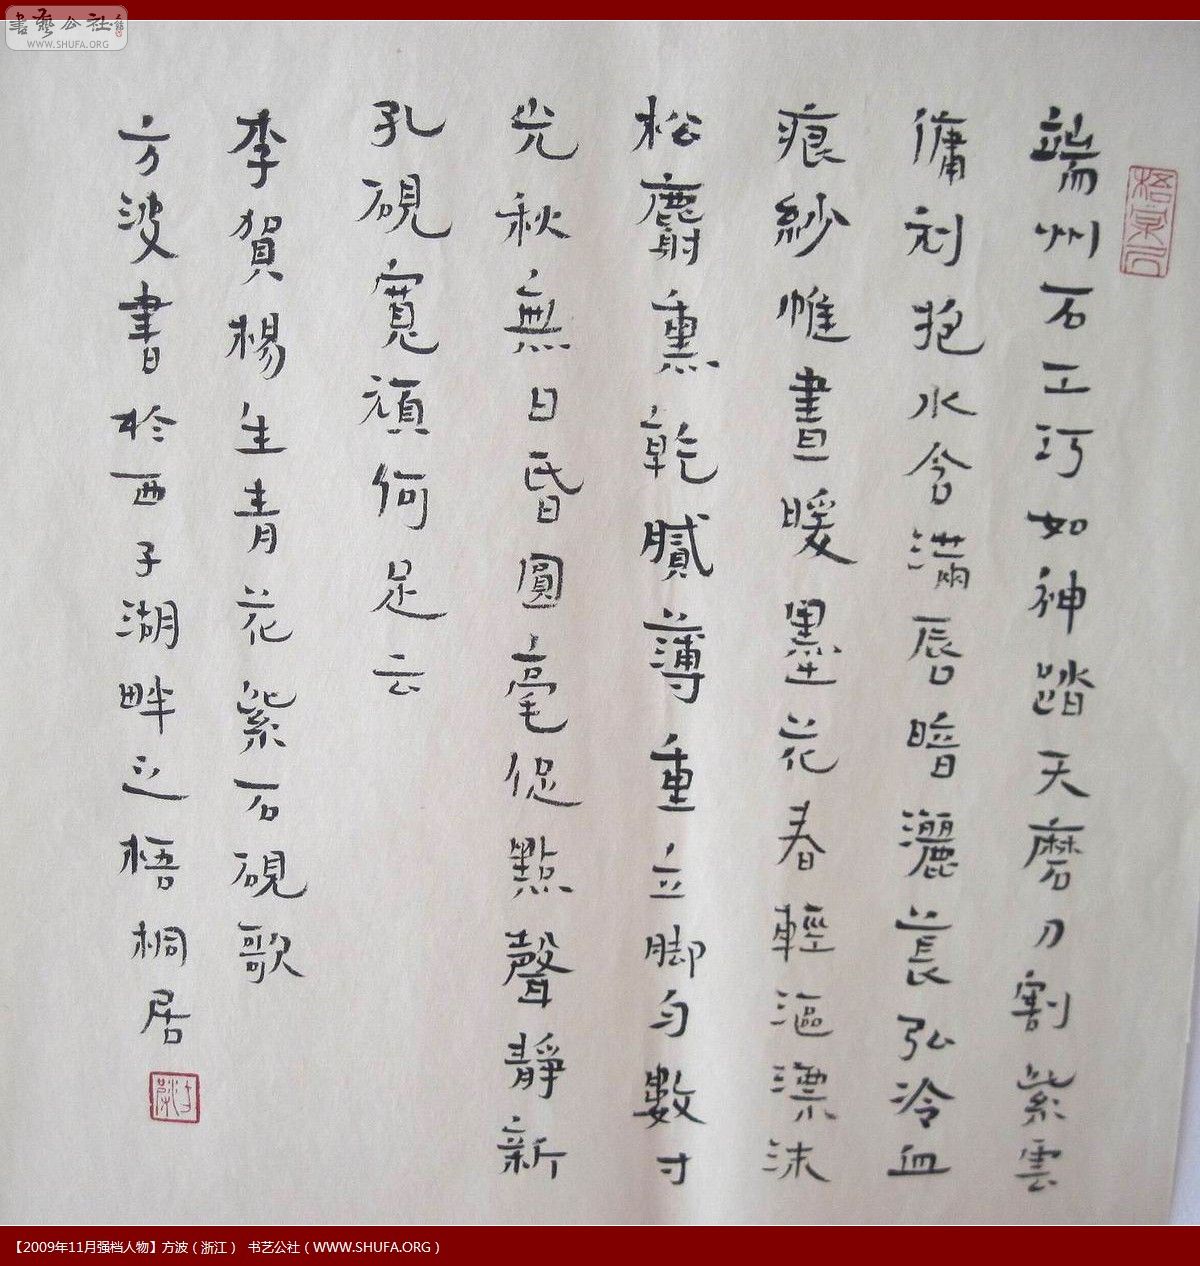 書藝公社
WWW.SHUFA.ORG
端州石工巧如神踏天磨刀割紫雲
傭刓抱水含滿唇暗灑萇弘冷血
痕紗帷晝暖墨花春輕漚漂沫
松麝熏乾膩薄重立脚勻數寸
光秋無日昏圓毫促點聲靜新
孔硯寬頑何足云
李賀楊生青花紫石硯歌
方波書於西子湖畔之梧桐居
【2009年11月强档人物】方波（浙江） 书艺公社（WWW.SHUFA.ORG）